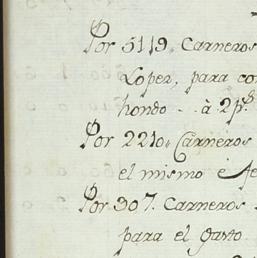 Por 5119. Carneros
Lopez, para con
hondo .. à 2 p.s
Por 2210. Carneros
el mismo è
Por 307. Carneros
para el gasto